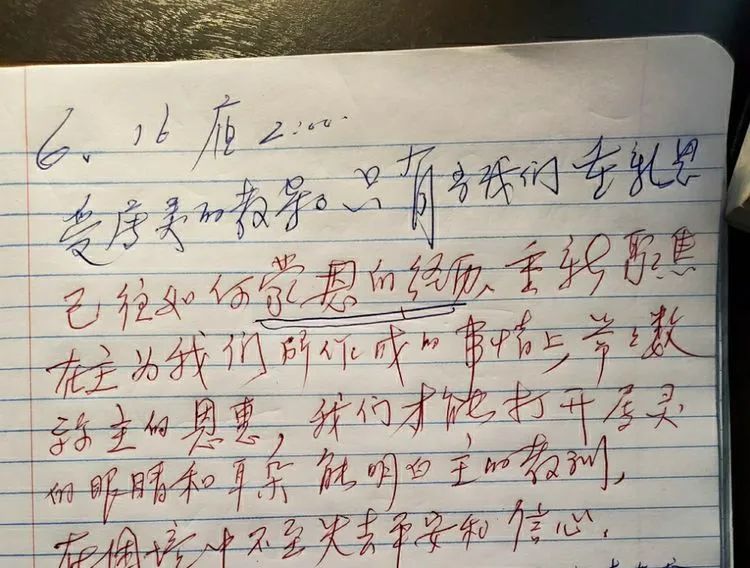 6、16 应 2:00
受属灵的教导。只有当我们重新思
已往如何蒙恩的经历、重新聚焦
在主为我们所作成的事情上,常常数
算主的恩惠,我们才能打开属灵
的眼睛和耳朵 能明白主的教训,
在困境中不至失去平安和信心.